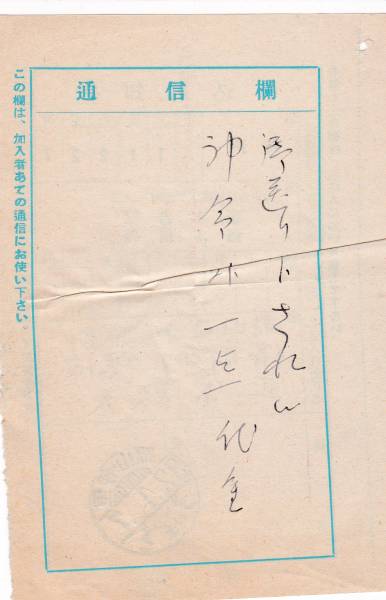 通信欄
御送り下されし
御令木一点代金
この欄は、加入者あての通信にお使い下さい。